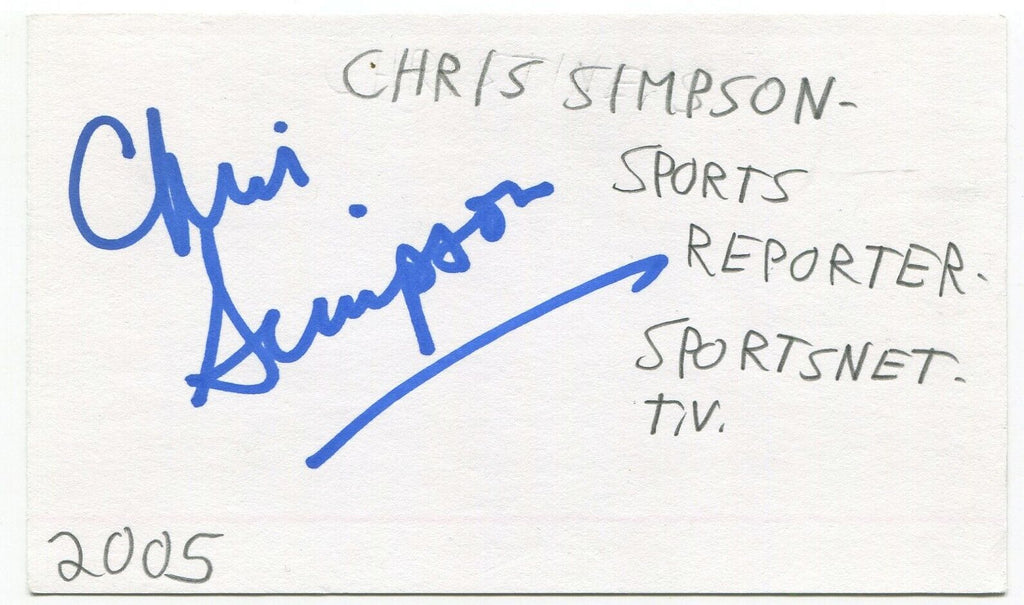 CHRIS SIMPSON-
Chris
Simpson
SPORTS
REPORTER.
SPORTSNET.
T.V.
2005